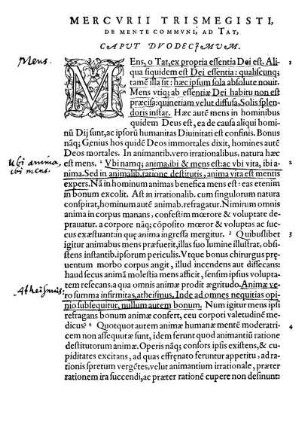 MERCVRII TRISMEGISTI,
DE MENTE COMMVNI, AD TAT,
CAPVT DVODECIMVM.
Mens.
MEns, o Tat, ex propria essentia Dei est: Ali
qua siquidem est Dei essentia: qualiscunq;
tamẽ illa sit: hæc ipsum sola absolute nouit.
Mens vtiq; ab essentiæ Dei habitu non est
præcisa: quinetiam velut diffusa, Solis splen
doris instar. Hæc autẽ mens in hominibus
quidem Deus est, ea de causa aliqui homi
nũ Dij sunt, ac ipsorũ humanitas Diuinitati est confinis. Bonus
nãq; Genius hos quidẽ Deos immortales dixit, homines autẽ
Deos mortales. In animantib. vero irrationalibus. natura hæc
est mens. Vbi namq; anima, ibi & mens est: ac vbi vita, ibi a-
Ubi anima
ibi mens.
nima. Sed in animalib. ratione destitutis, anima vita est mentis
expers. Nã in hominum animas benefica mens est: eas etenim
in bonum excolit. Ast in irrationalib. cum singulorum natura
conspirat, hominum autem animab. refragatur. Nimirum omnis
anima in corpus manans, confestim mœrore & voluptate de-
prauatur. a corpore nãq; cõposito mœror & voluptas ac fuc-
cus exæstuant: in quæ anima ingressa mergitur. Quibuslibet
igitur animabus mens præfuerit, illas suo lumine illustrat. obsi-
stens instantib. ipsorum periculis. Vtque bonus chirurgus præme-
ntum morbo corpus angit, illud incendens aut dissecans:
haud secus animã molestia mens afficit, ipsam ipsius volupta-
tem resecans. a qua omnis animæ prodijt ægritudo. Animæ ve-
Atheismus.
ro summa infirmitas, atheismus. Inde ad omnes nequitias opi-
nio subsequitur, nullum autem bonum. Num igitur mens ipsi
refragans bonum animæ confert, ceu corpori valetudinẽ me-
dicus? Quotquot autem animæ humanæ mentẽ moderatri-
cem non assequutæ sunt, idem ferunt quod animantiũ ratione
destitutorum animæ. Operis nãq; consors ipsis existens, & cu-
piditates excitans, ad quas effrænato feruntur appetitu, ad ra-
tionis spretum vergẽtes, velut animantium irrationale, præter
rationem ira succendi, ac præter rationẽ cupere non desinunt: